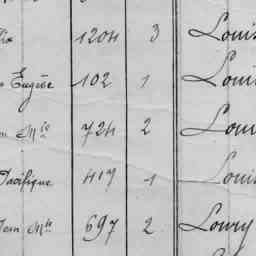 lix 1204 3 Louis
Eugène 102 1 Loui
Mie 724 2 Lou
Pacifique 417 1 Loui
Jean Mie 697 2 Loury